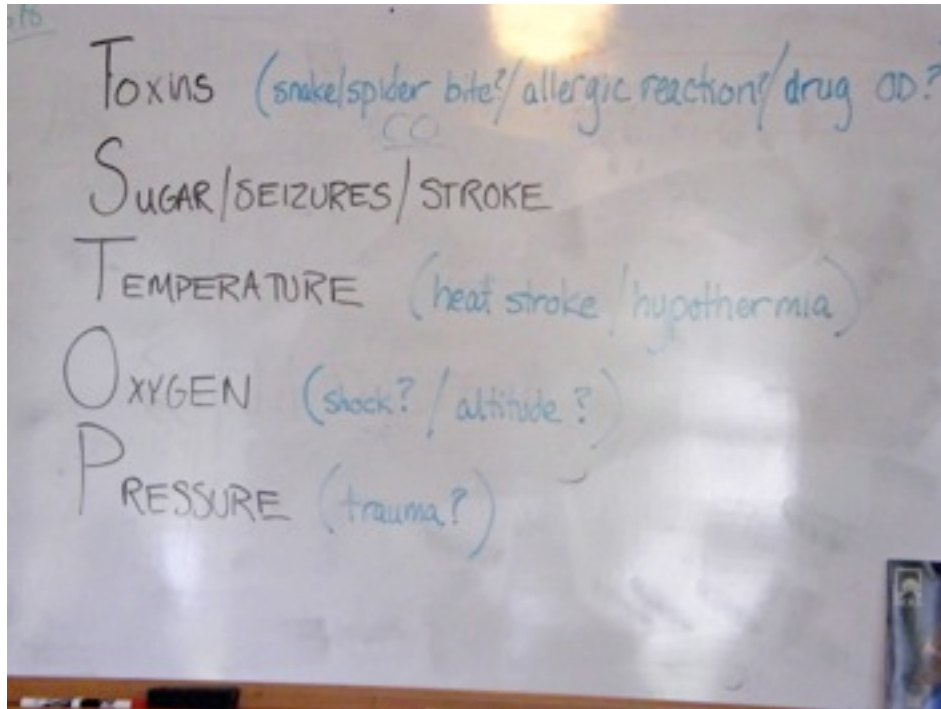 Toxins (snake/spider bite?/allergic reaction?/drug OD?
CO
SUGAR/SEIZURES/STROKE
TEMPERATURE (heat stroke/hypothermia)
OXYGEN (shock?/altitude?)
PRESSURE (trauma?)